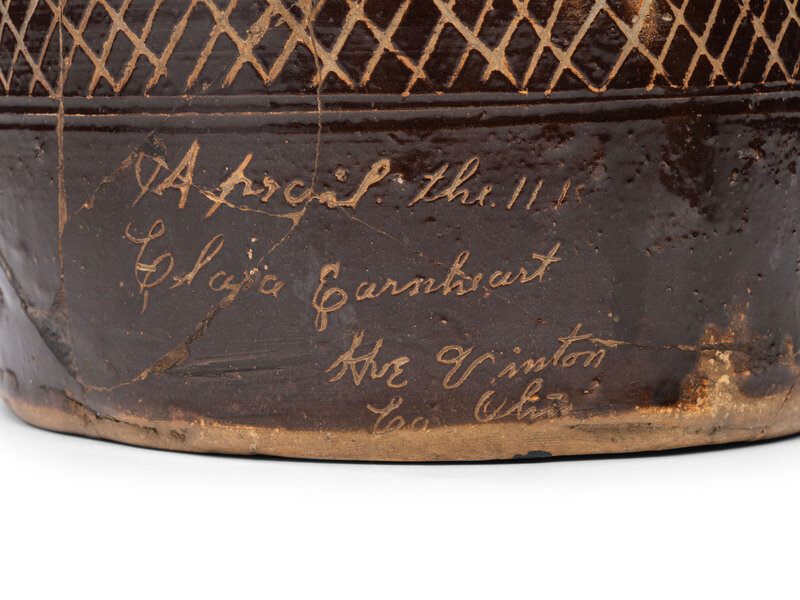 April. the. 11
Clara Earnheart
Vinton
Co Ohio